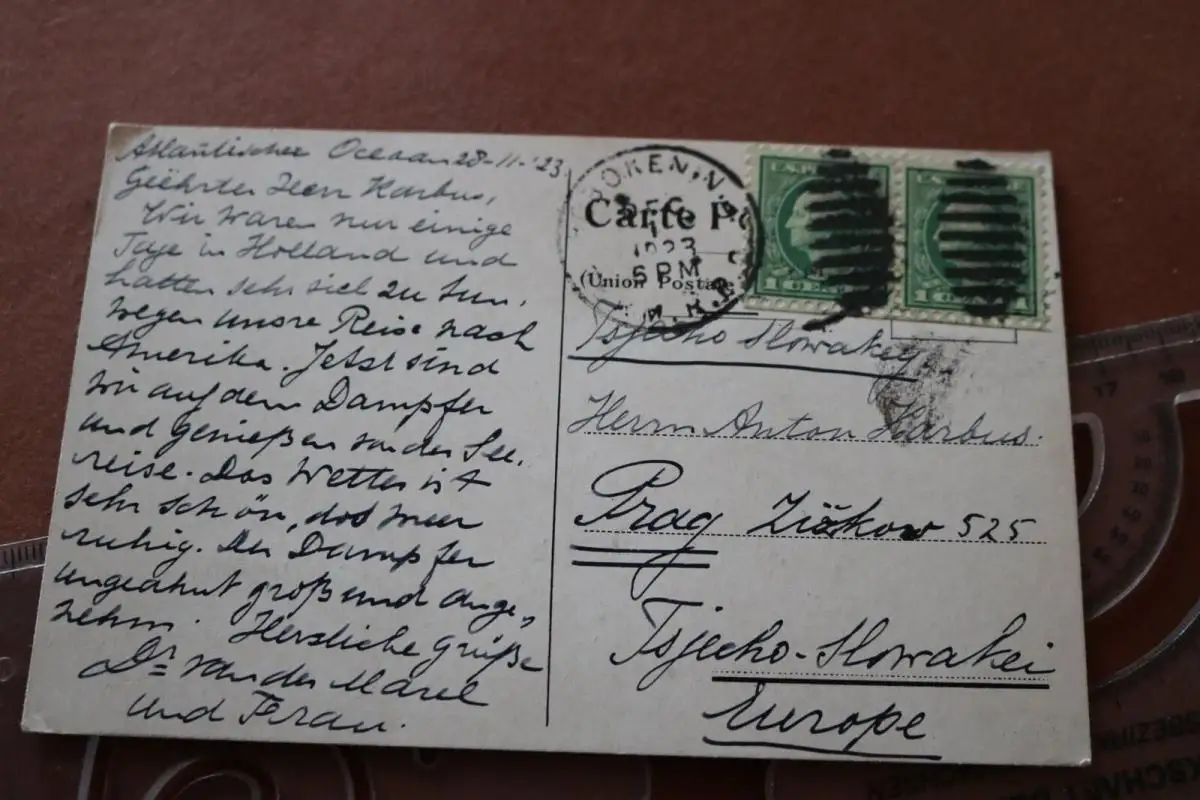 Atlantischer Ocean 28-11-'23
Geëhrter Herr Karbus,
Wir waren nur einige
Tage in Holland und
hatten sehr viel zu tun,
wegen unsre Reise nach
Amerika. Jetzt sind
wir auf dem Dampfer
und genießen von der See,
reise. Das Wetter ist
sehr schön, das meer
ruhig. Der Dampfer
ungeahnt groß und ange,
nehm. Herzliche Grüße
Dr van der Marel
und Frau.
HOBOKEN, N.J.
DEC
1
1923
6 PM
Carte Po
(Union Postale
Tsjecho Slowakey
Herrn Anton Karbus.
Prag Zižkow 525
Tsjecho-Slowakei
Europe
17